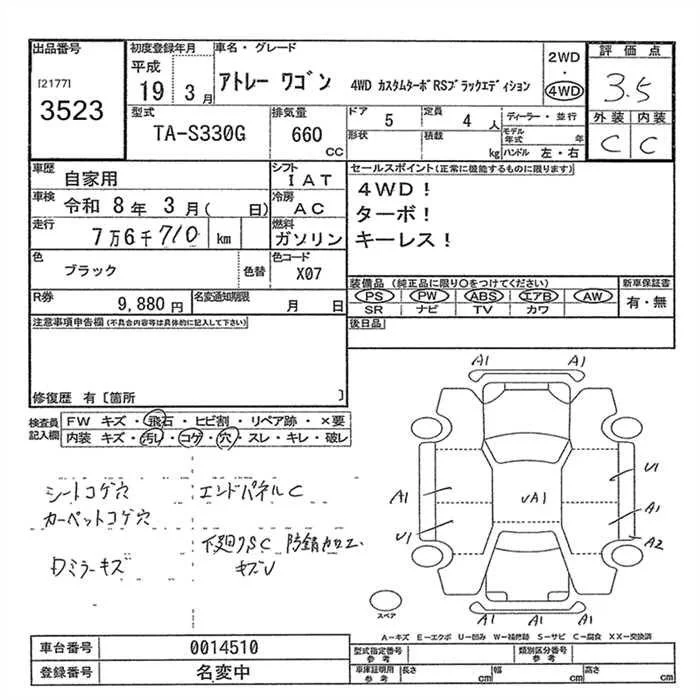 出品番号
[2177]
3523
初度登録年月
平成
19 3月
車名・グレード
アトレー ワゴン 4WD カスタムターボRSブラックエディション
2WD
・
4WD
評価点
3.5
外装 内装
C C
型式
TA-S330G
排気量
660
cc
ドア 5
定員 4 人
形状
積載 kg
ディーラー・並行
モデル年式 年
ハンドル 左・右
車歴 自家用
シフト IAT
車検 令和 8年 3月( 日)
冷房 AC
走行 7万6千710 km
燃料 ガソリン
色 ブラック 色替
色コード X07
R券 9,880 円
名変通知期限 月 日
セールスポイント(正常に機能するものに限ります)
4WD!
ターボ!
キーレス!
装備品 (純正品に限り○をつけてください)
PS PW ABS エアB AW
SR ナビ TV カワ
新車保証書
有・無
後日品
注意事項申告欄(不具合内容等は具体的に記入して下さい)
修復歴 有〔箇所 〕
検査員
記入欄
FW キズ・飛石・ヒビ割・リペア跡・×要
内装 キズ・汚れ・コゲ・穴・スレ・キレ・破レ
シートコゲ穴
カーペットコゲ穴
エンドパネルC
下廻りSC 防錆加工
キズU
ミラーキズ
A1 A1
U1
A1
UA1
A1
U1
A2
A1 A1 A1
スペア
A-キズ E-エクボ U-凹み W-補修跡 S-サビ C-腐食 XX-交換済
車台番号 0014510
登録番号 名変中
型式指定番号
参考
類別区分番号
参考
車庫証明用
参考
長さ cm
幅 cm
高さ cm